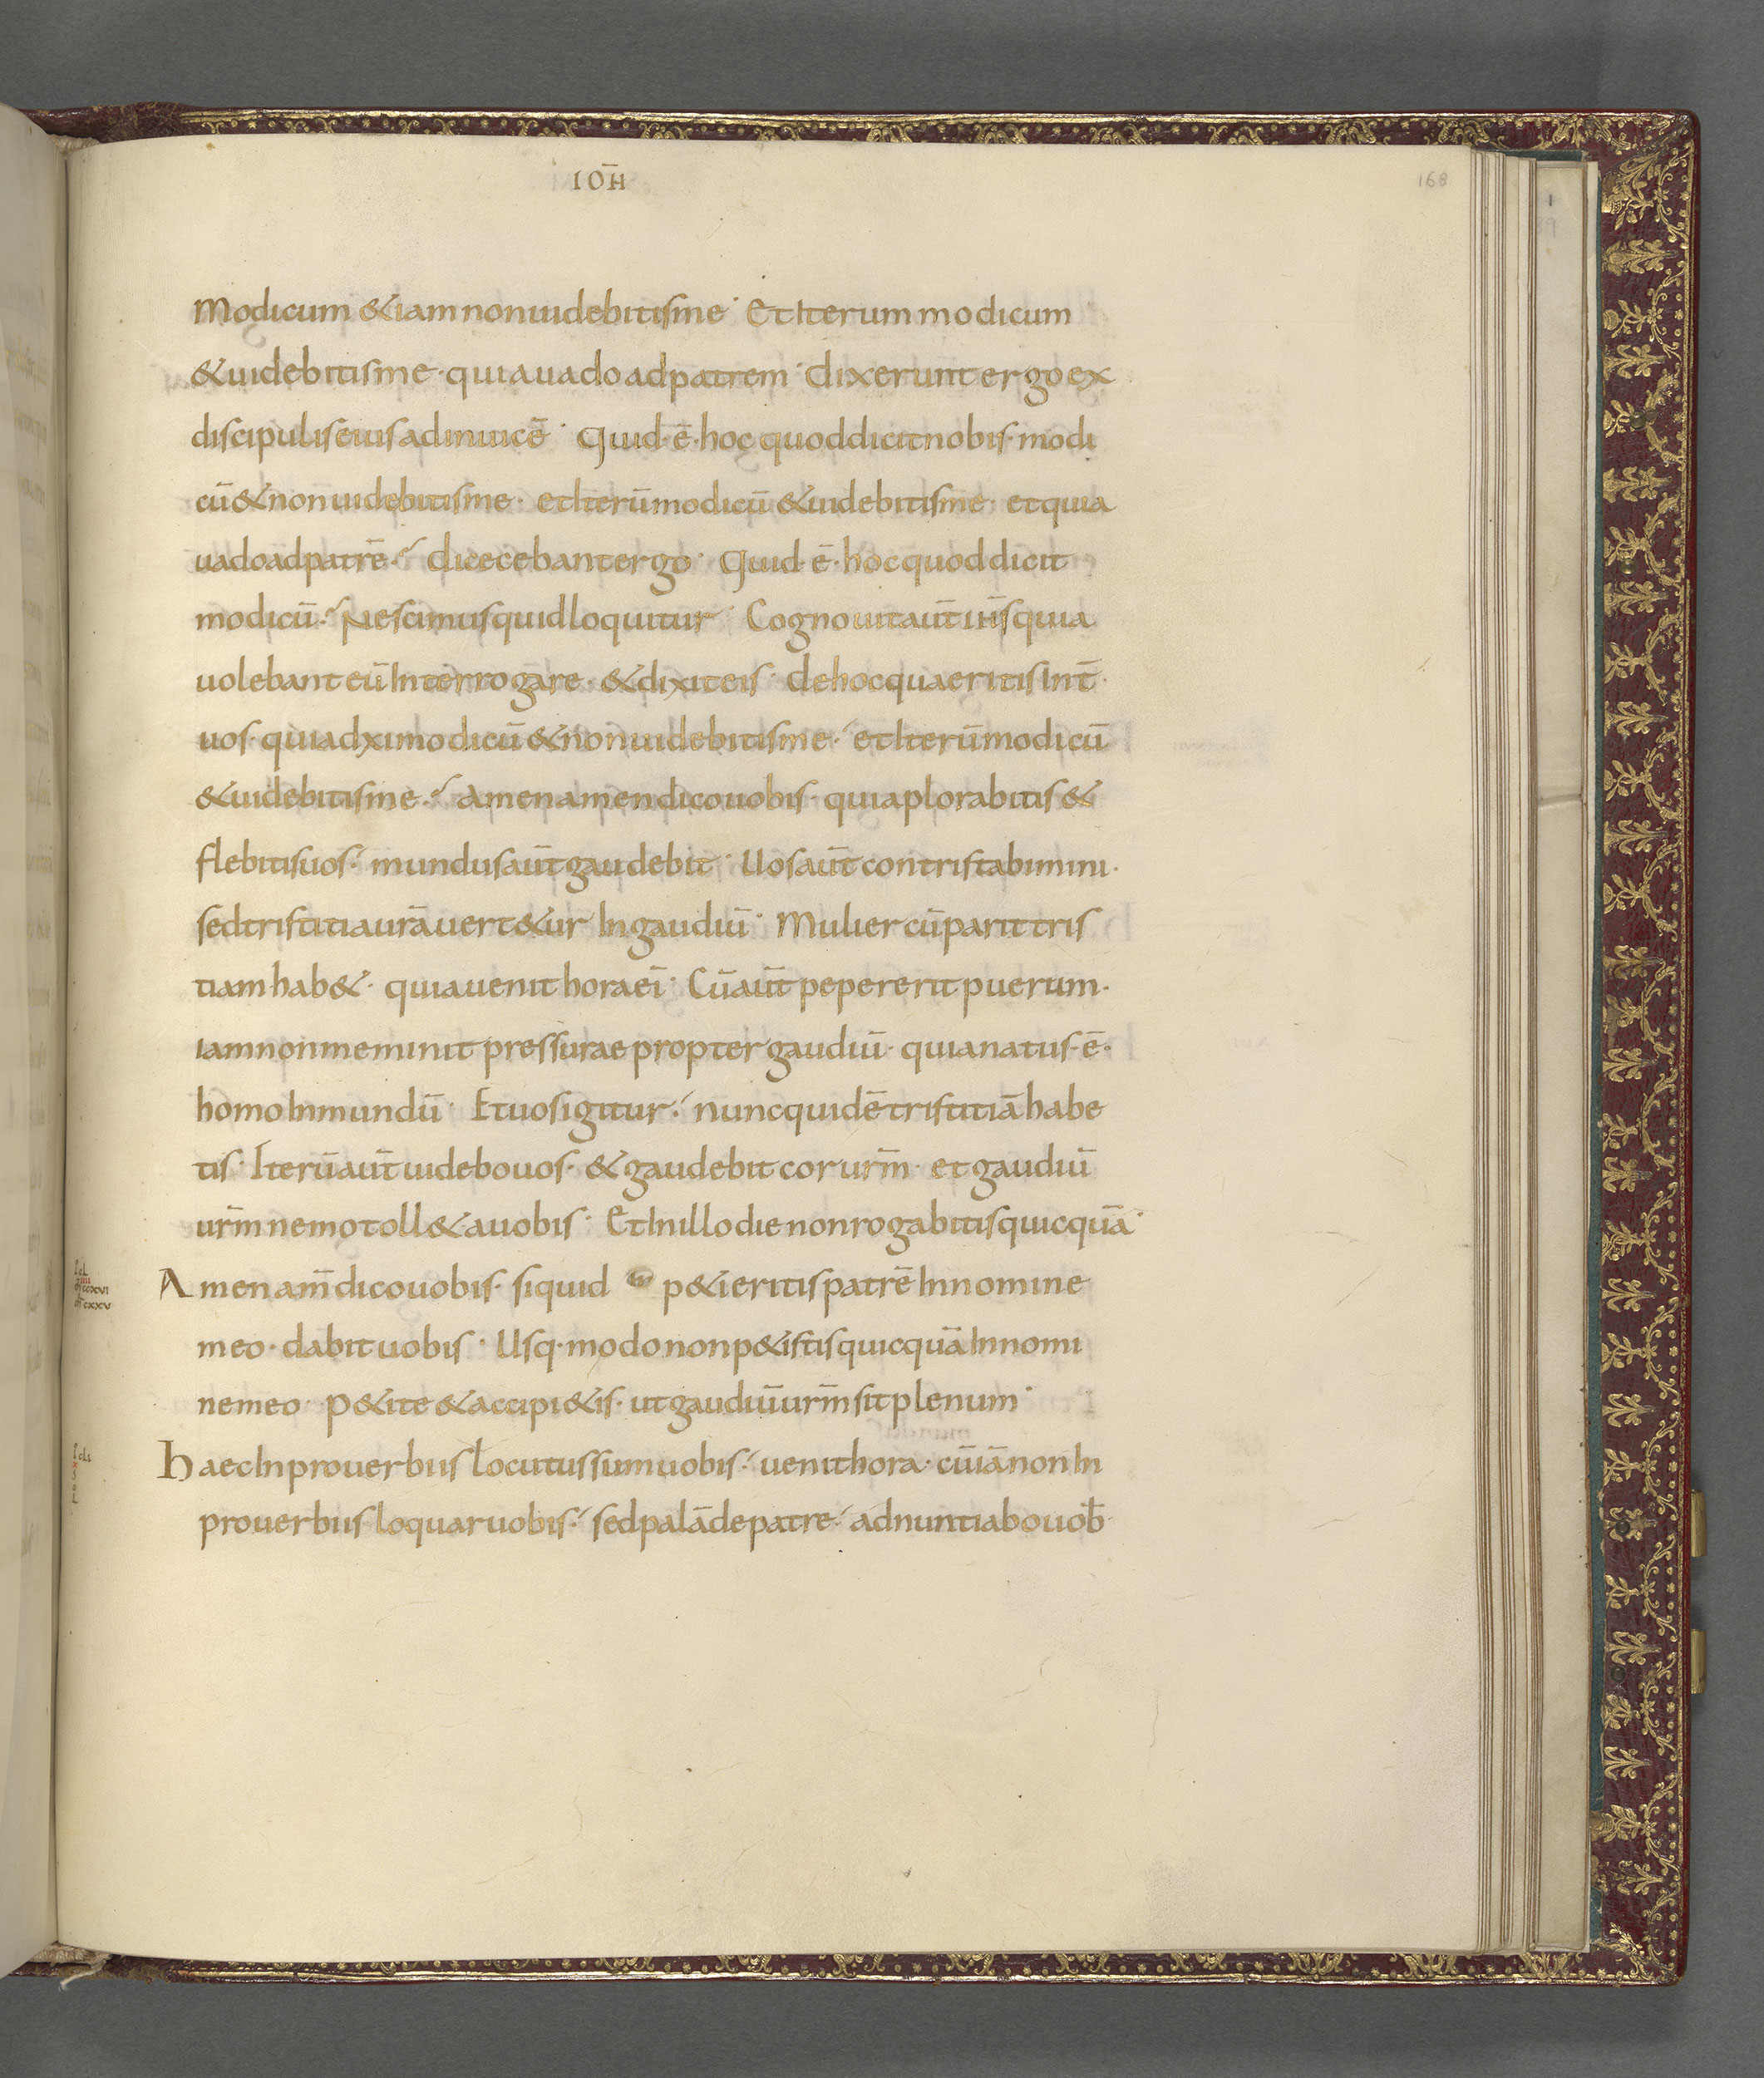 IOH̄
168
Modicum & iam non uidebitis me · Et Iterum modicum
& uidebitis me · quia uado ad patrem · dixerunt ergo ex
discipulis eius ad inuicē · Quid · ē · hoc quod dicit nobis · modi
cū & non uidebitis me · et Iterū modicū & uidebitis me · et quia
uado ad patrē · dicecebant ergo · Quid · ē · hoc quod dicit
modicū · Nescimus quid loquitur · Cognouit aūt iħs quia
uolebant eū Interrogare · & dixit eis · de hoc quaeritis Int̄
uos · quia dxi modicū & non uidebitis me · et Iterū modicū
& uidebitis me · amen amen dico uobis · quia plorabitis &
flebitis uos · mundus aūt gaudebit · Uos aūt contristabimini ·
sed tristitia ur̄a uert&ur In gaudiū · Mulier cū parit tris
tiam hab& · quia uenit hora eī · Cū aūt pepererit puerum ·
iam non meminit pressurae propter gaudiū · quia natus · ē ·
homo In mundū · Et uos igitur · nunc quidē tristitiā habe
tis · Iterū aūt uidebo uos · & gaudebit cor urm̄ · et gaudiū
urm̄ nemo toll& a uobis · Et In illo die non rogabitis quicquā ·
Amen am̄ dico uobis · si quid p&ieritis patrē In nomine
meo · dabit uobis · Usq · modo non p&istis quicquā In nomi
ne meo · P&ite & accipi&is · ut gaudiū urm̄ sit plenum ·
Haec In prouerbiis locutus sum uobis · uenit hora · cū iā non In
prouerbiis loquar uobis · sed palā de patre · adnuntiabo uob̄